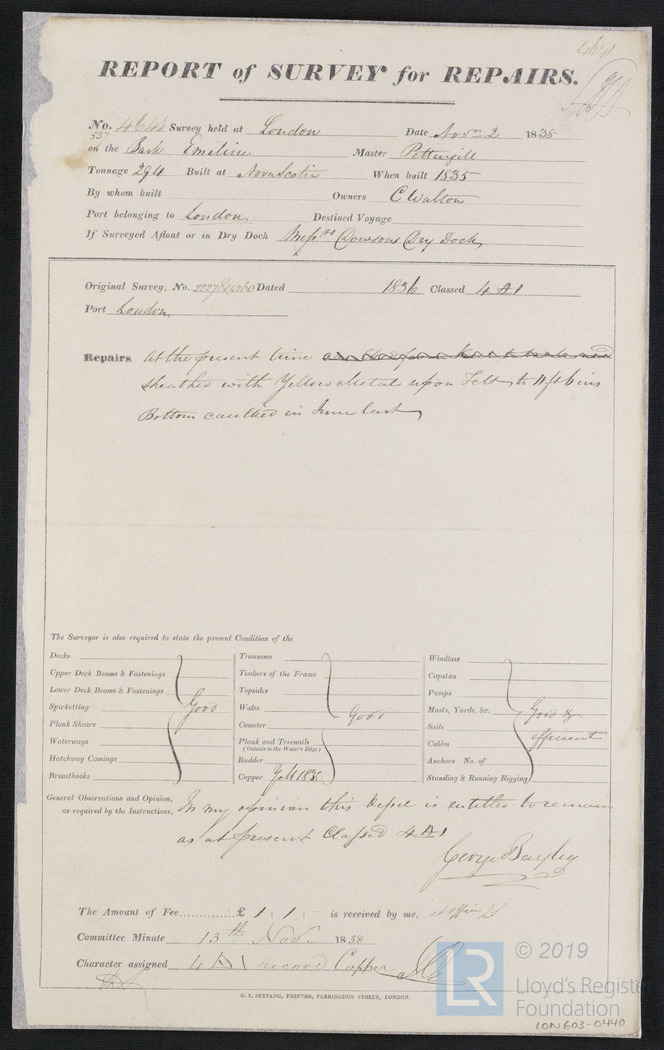 REPORT of SURVEY for REPAIRS.
No. 4643 Survey held at London Date Novr 2 1838
537
on the Bark Emiline Master Pottingill
Tonnage 294 Built at Nova Scotia When built 1835
By whom built Owners C Walton
Port belonging to London Destined Voyage
If Surveyed Afloat or in Dry Dock Messrs Dowsons Dry Dock
Original Survey, No. Dated 1836 Classed 4 A1
Port London
Repairs at the present time
sheathed with Yellow Metal upon Felt to 11 ft 6 ins
Bottom caulked in June last
The Surveyor is also required to state the present Condition of the
Decks
Upper Deck Beams & Fastenings
Lower Deck Beams & Fastenings
Spirketting
Plank Shears
Waterways
Hatchway Comings
Breasthooks
Good
Transoms
Timbers of the Frame
Topsides
Wales
Counter
Plank and Treenails
(Outside to the Water's Edge)
Rudder
Copper Feb 1838
Good
Windlass
Capstan
Pumps
Masts, Yards, &c.
Sails
Cables
Anchors No. of
Standing & Running Rigging
Good &
efficient
General Observations and Opinion, In my opinion this Vessel is entitled to remain
as required by the Instructions, as at present Classed 4 A1
George Bayley
The Amount of Fee............ £ 1 : 1 : - is received by me,
Committee Minute 13th Nov. 1838
Character assigned 4 A1 record Copper
G. F. SEYFANG, PRINTER, FARRINGDON STREET, LONDON.
LR
© 2019
Lloyd's Register
Foundation
LON603-0440